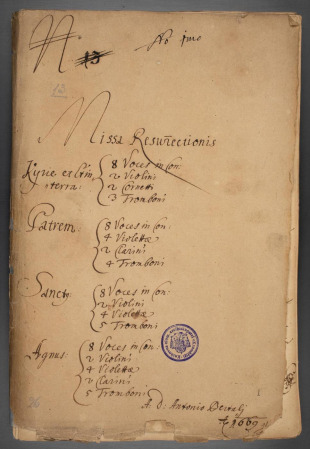 N. 13
No jmo
13
Missa Resurrectionis
Kyrie et in terra:
8 Voces in Con:
2 Violini
2 Cornetti
3 Tromboni
Patrem
8 Voces in Con:
4 Violettæ
2 Clarini
4 Tromboni
Sanct9
8 Voces in Con:
2 Violini
4 Violettæ
5 Tromboni
Agnus
8 Voces in Con:
2 Violini
4 Violettæ
2 Clarini
5 Tromboni
A. D: Antonio Bertali
1669